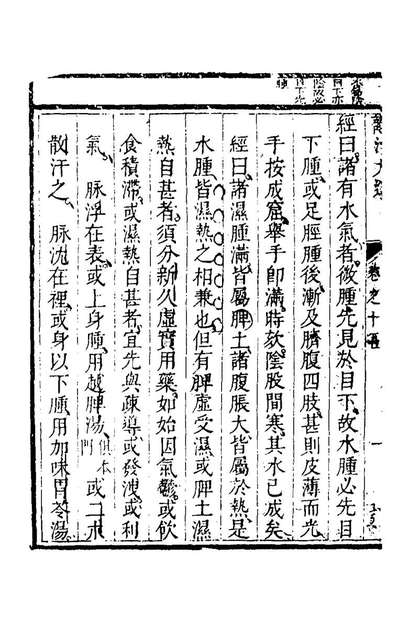 目下亦
陰故必
目下先
腫
卷之十五
一
經曰諸有水氣者微腫先見於目下故水腫必先目
下腫或足脛腫後漸及臍腹四肢甚則皮薄而光
手按成窟舉手即滿時欬陰股間寒其水已成矣
經曰諸濕腫滿皆屬脾土諸腹脹大皆屬於熱是
水腫皆濕熱之相兼也但有脾虛受濕或脾土濕
熱自甚者須分新久虛實用藥如始因氣鬱或飲
食積滯或濕熱自甚者宜先與疎導或發洩或利
氣 脉浮在表或上身腫用越脾湯俱本門或二朮
散汗之 脉沉在裡或身以下腫用加味胃苓湯